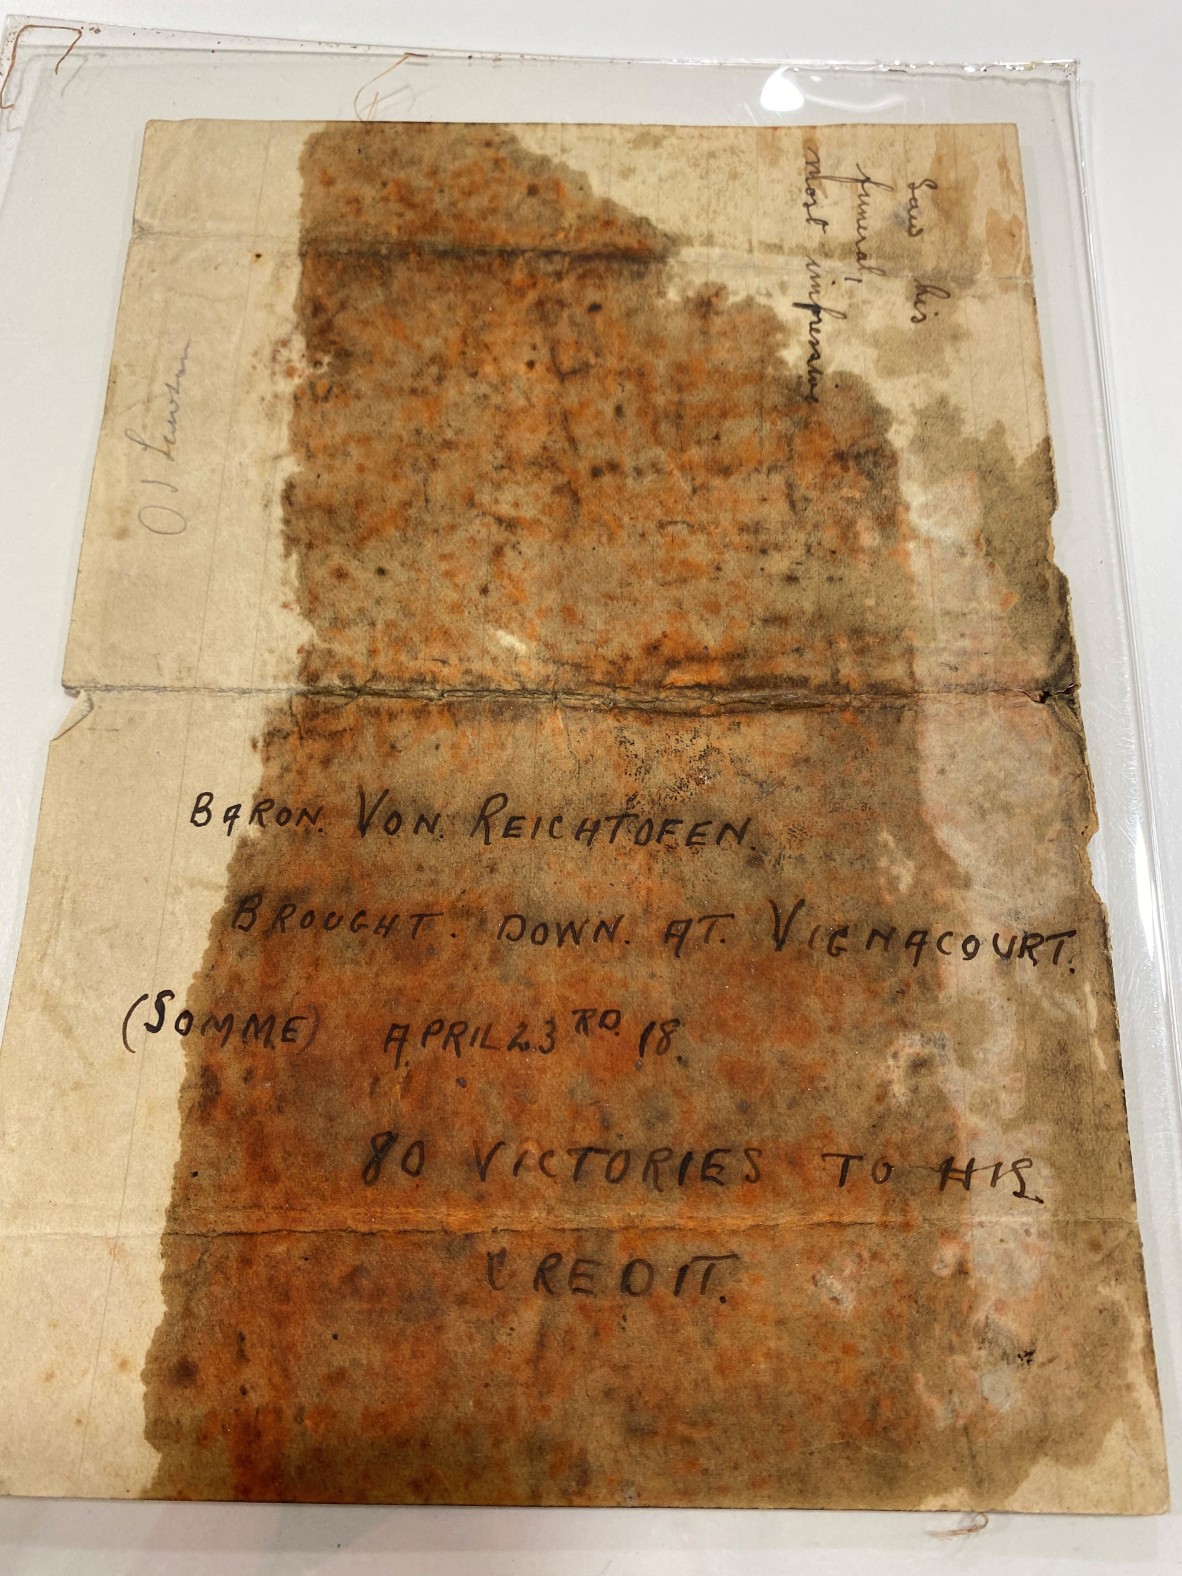 Saw his
funeral,
most impressive
BARON. VON. REICHTOFEN.
BROUGHT. DOWN. AT. VIGNACOURT.
(SOMME) APRIL 23RD. 18.
80 VICTORIES TO HIS.
CREDIT.